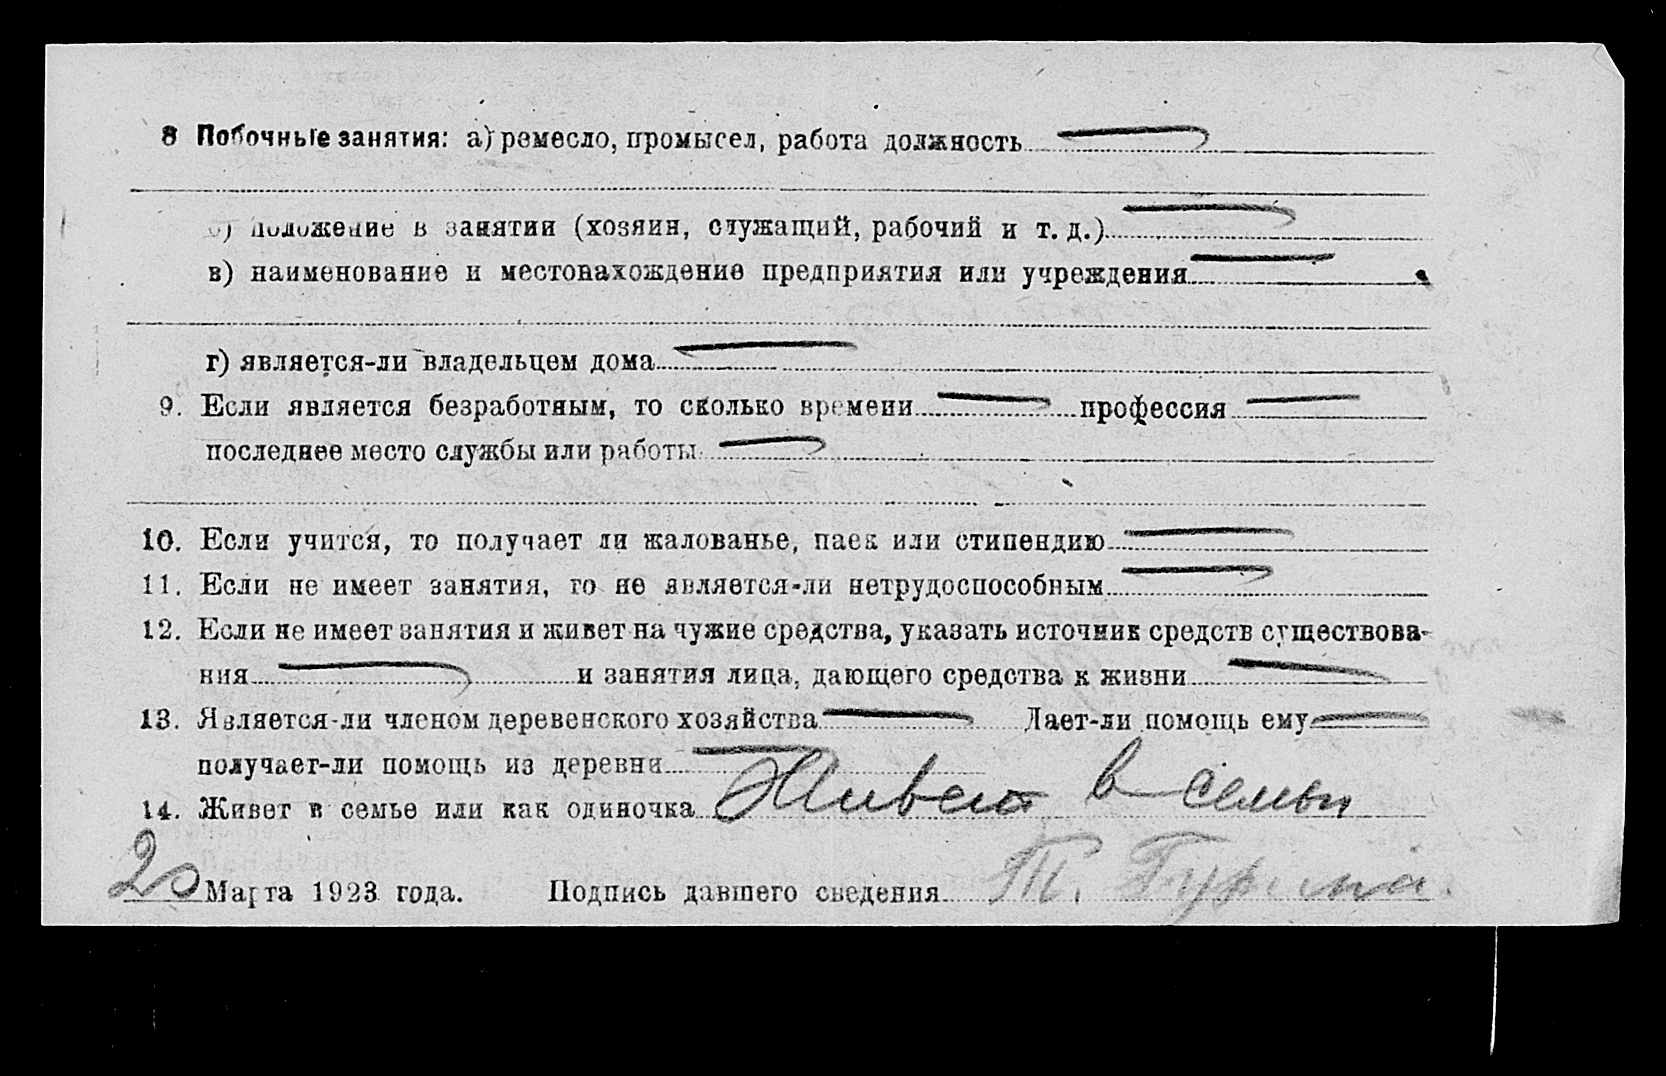 8 Побочные занятия: а) ремесло, промысел, работа должность —
б) положение в занятии (хозяин, служащий, рабочий и т. д.) —
в) наименование и местонахождение предприятия или учреждения —
г) является-ли владельцем дома —
9. Если является безработным, то сколько времени — профессия —
последнее место службы или работы —
10. Если учится, то получает ли жалованье, паек или стипендию —
11. Если не имеет занятия, то не является-ли нетрудоспособным —
12. Если не имеет занятия и живет на чужие средства, указать источник средств существова-
ния — и занятия лица, дающего средства к жизни —
13. Является-ли членом деревенского хозяйства — Дает-ли помощь ему —
получает-ли помощь из деревни —
14. Живет в семье или как одиночка Живет в семьи
20 Марта 1923 года. Подпись давшего сведения Т.